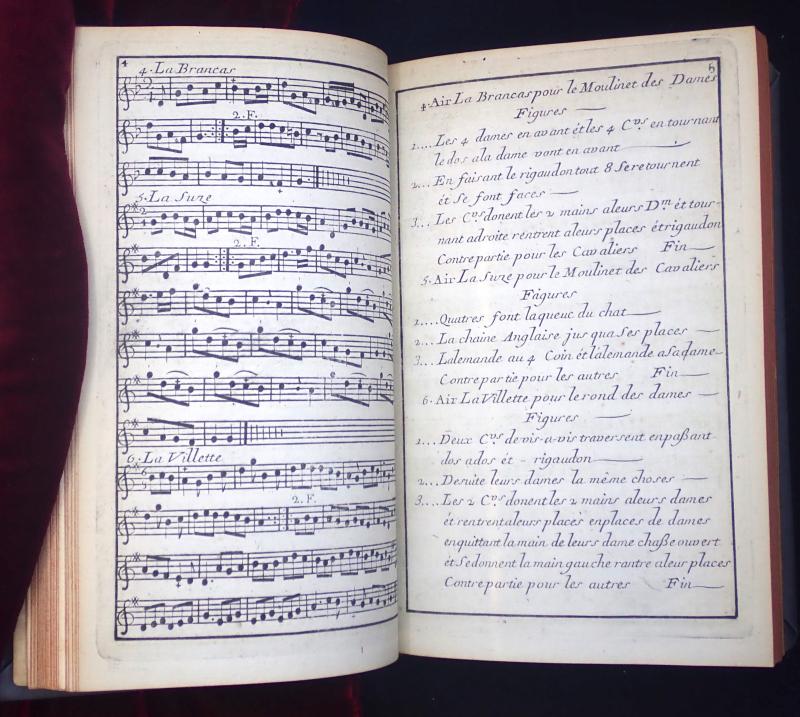 4
4. La Brancas
2. F.
5. La Suze
2. F.
6. La Villette
2. F.
5
4. Air La Brancas pour le Moulinet des Dames
Figures
1.... Les 4 dames en avant ét les 4 C.vs en tournant
le dos ala dame vont en avant
2... En faisant le rigaudon tout 8 Se retournent
ét Se font faces
3... Les C.vs donent les 2 mains aleurs D.m ét tour-
nant adroite rentrent aleurs places ét rigaudon
Contre partie pour les Cavaliers Fin
5. Air La Suze pour le Moulinet des Cavaliers
Figures
1.... Quatres font laqueuc du chat
2... La chaine Anglaise jus qua Ses places
3... Lalemande au 4 Coin ét lalemande asadame
Contre partie pour les autres Fin
6. Air La Villette pour le rond des dames
Figures
1... Deux C.vs de vis-a-vis traversent enpaßant
dos ados ét - rigaudon
2... Desuite leurs dames la même choses
3... Les 2 C.vs donent les 2 mains aleurs dames
ét rentrent aleurs places enplaces de dames
enquittant la main de leurs dame chaße ouvert
ét Se donnent la main gauche rantre aleur places
Contre partie pour les autres Fin